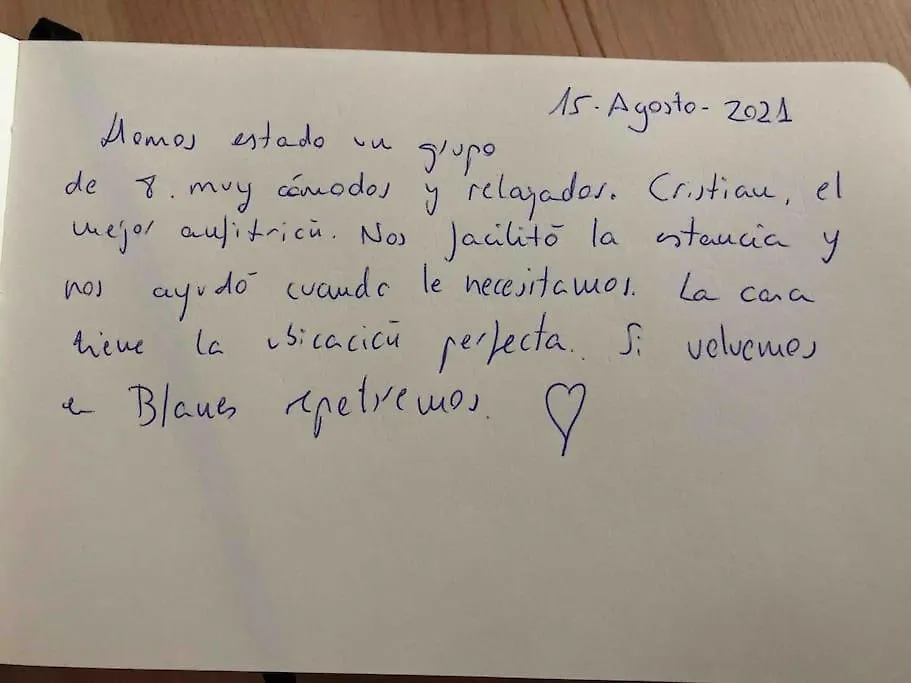 15. Agosto - 2021
Hemos estado un grupo
de 8. muy cómodos y relajados. Cristian, el
mejor anfitrión. Nos facilitó la estancia y
nos ayudó cuando le necesitamos. La casa
tiene la ubicación perfecta. Si volvemos
a Blanes repetiremos. ♡